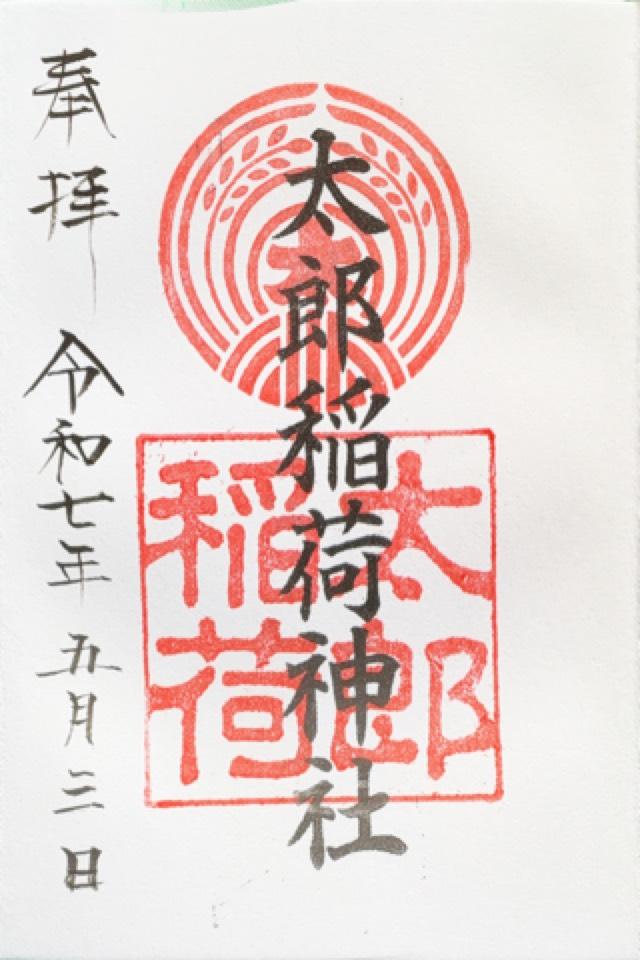 太郎稲荷神社
太郎
稲荷
奉拝
令和七年五月三日